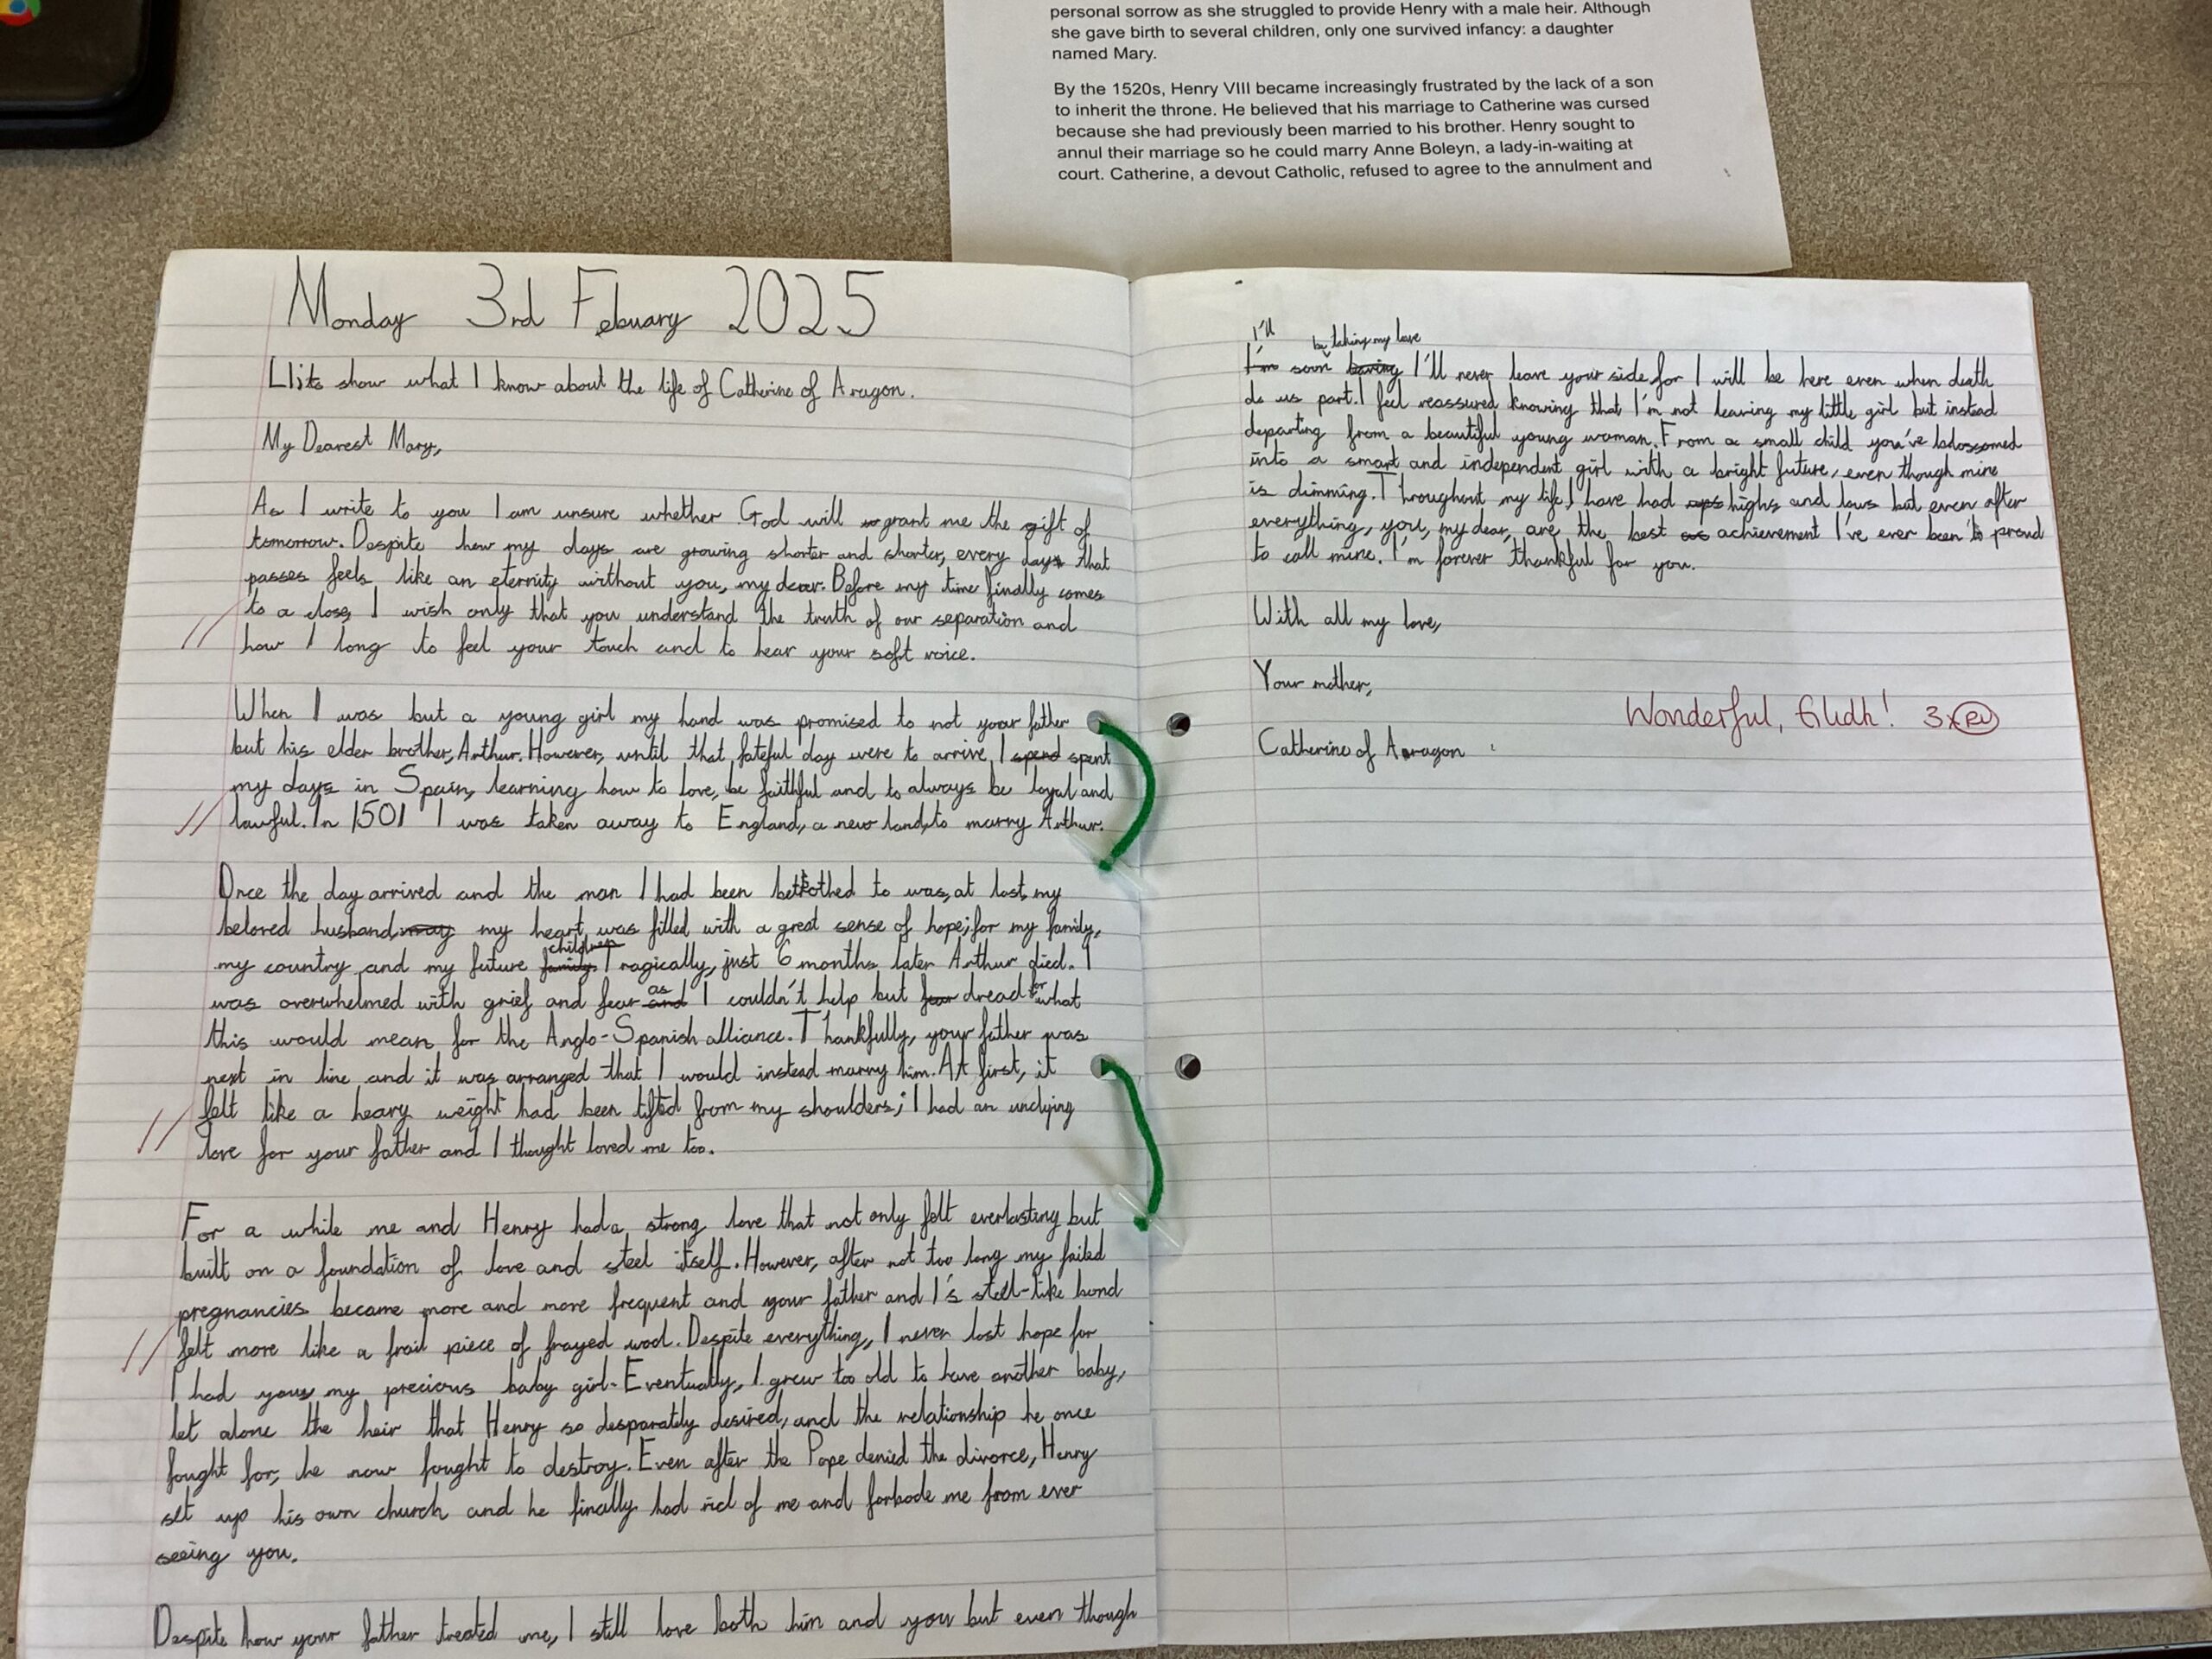 personal sorrow as she struggled to provide Henry with a male heir. Although
she gave birth to several children, only one survived infancy: a daughter
named Mary.
By the 1520s, Henry VIII became increasingly frustrated by the lack of a son
to inherit the throne. He believed that his marriage to Catherine was cursed
because she had previously been married to his brother. Henry sought to
annul their marriage so he could marry Anne Boleyn, a lady-in-waiting at
court. Catherine, a devout Catholic, refused to agree to the annulment and
Monday 3rd Febuary 2025
show what I know about the life of Catherine of Aragon.
My Dearest Mary,
As I write to you I am unsure whether God will grant me the gift of
tomorrow. Despite how my days are growing shorter and shorter, every day that
passes feels like an eternity without you, my dear. Before my time finally comes
to a close, I wish only that you understand the truth of our separation and
how I long to feel your touch and to hear your soft voice.
When I was but a young girl my hand was promised to not your father
but his elder brother, Arthur. However, until that fateful day were to arrive, I spend spent
my days in Spain, learning how to love, be faithful and to always be loyal and
lawful. In 1501 I was taken away to England, a new land, to marry Arthur.
Once the day arrived and the man I had been betrothed to was, at last, my
beloved husband, my heart was filled with a great sense of hope; for my family,
my country and my future family children. Tragically, just 6 months later Arthur died. I
was overwhelmed with grief and fear and as I couldn't help but fear dread for what
this would mean for the Anglo-Spanish alliance. Thankfully, your father was
next in line and it was arranged that I would instead marry him. At first, it
felt like a heavy weight had been lifted from my shoulders; I had an undying
love for your father and I thought loved me too.
For a while me and Henry had a strong love that not only felt everlasting but
built on a foundation of love and steel itself. However, after not too long my failed
pregnancies became more and more frequent and your father and I's steel-like bond
felt more like a frail piece of frayed wool. Despite everything, I never lost hope for
I had you, my precious baby girl. Eventually, I grew too old to have another baby,
let alone the heir that Henry so desparately desired, and the relationship he once
fought for, he now fought to destroy. Even after the Pope denied the divorce, Henry
set up his own church and he finally had rid of me and forbade me from ever
seeing you.
Despite how your father treated me, I still love both him and you but even though
I'll
be taking my leave
I'm soon I'll never leave your side, for I will be here even when death
do us part. I feel reassured knowing that I'm not leaving my little girl but instead
departing from a beautiful young woman. From a small child you've
into a smart and independent girl with a bright future, even though mine
is dimming. Throughout my life, I have had ups highs and lows but even after
everything, you, my dear, are the best achievement I've ever been to proud
to call mine. I'm forever thankful for you.
With all my love,
Your mother,
Catherine of Aragon
Wonderful, 3x